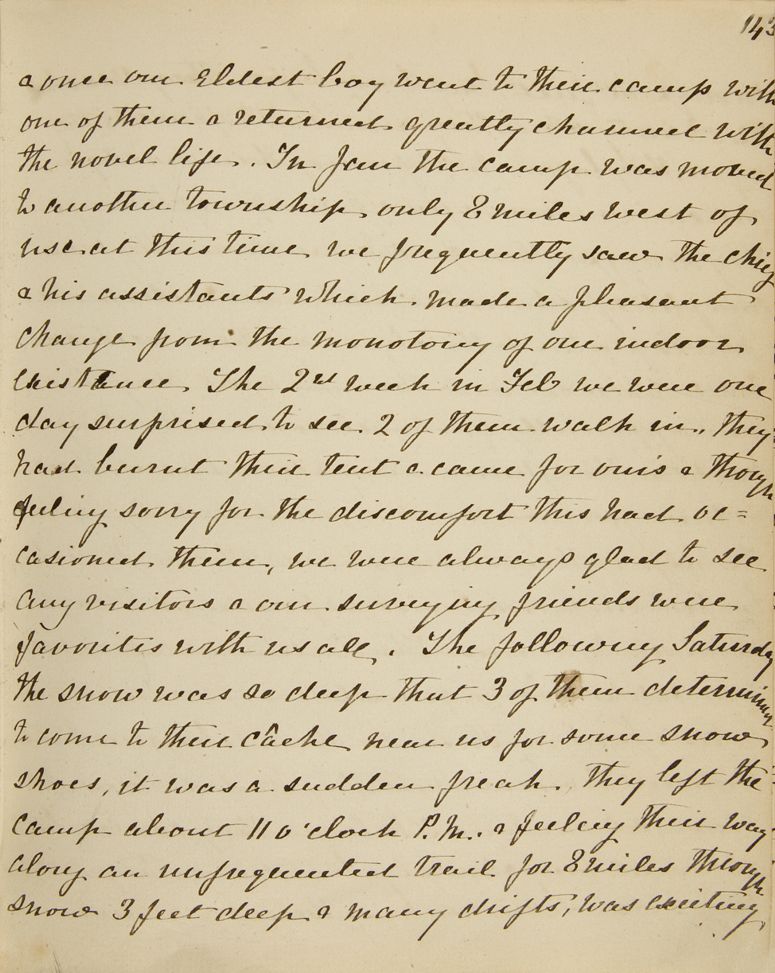 143
& once our Eldest boy went to their camp with
one of them & returned greatly charmed with
the novel life. In Jan the camp was moved
to another township, only 8 miles west of
us & at this time we frequently saw the chief
& his assistants which made a pleasant
change from the monotony of our indoor
existence. The 2nd week in Feb we were one
day surprised to see 2 of them walk in, they
had burnt their tent & came for ours & though
feeling sorry for the discomfort this had oc=
casioned them, we were always glad to see
any visitors & our surveying friends were
favorites with us all. The following Saturday
the snow was so deep that 3 of them determined
to come to their câche near us for some snow
shoes, it was a sudden freak. They left the
camp about 11 o'clock P.M. & feeling their way
along an unfrequented trail for 8 miles through
snow 3 feet deep & many drifts, was exciting